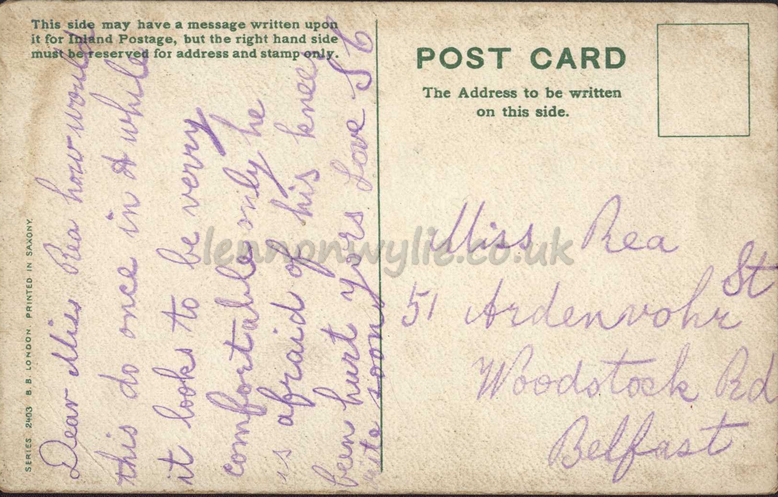 This side may have a message written upon
it for Inland Postage, but the right hand side
must be reserved for address and stamp only.
POST CARD
The Address to be written
on this side.
SERIES 2403 B. B. LONDON. PRINTED IN SAXONY.
Dear Miss Rea how would
this do once in A while
it looks to be verry
comfortable only he
is afraid of his knee
been hurt yours Love S G
rite soon
Miss Rea
51 Ardenvohr St
Woodstock Rd
Belfast
lennonwylie.co.uk